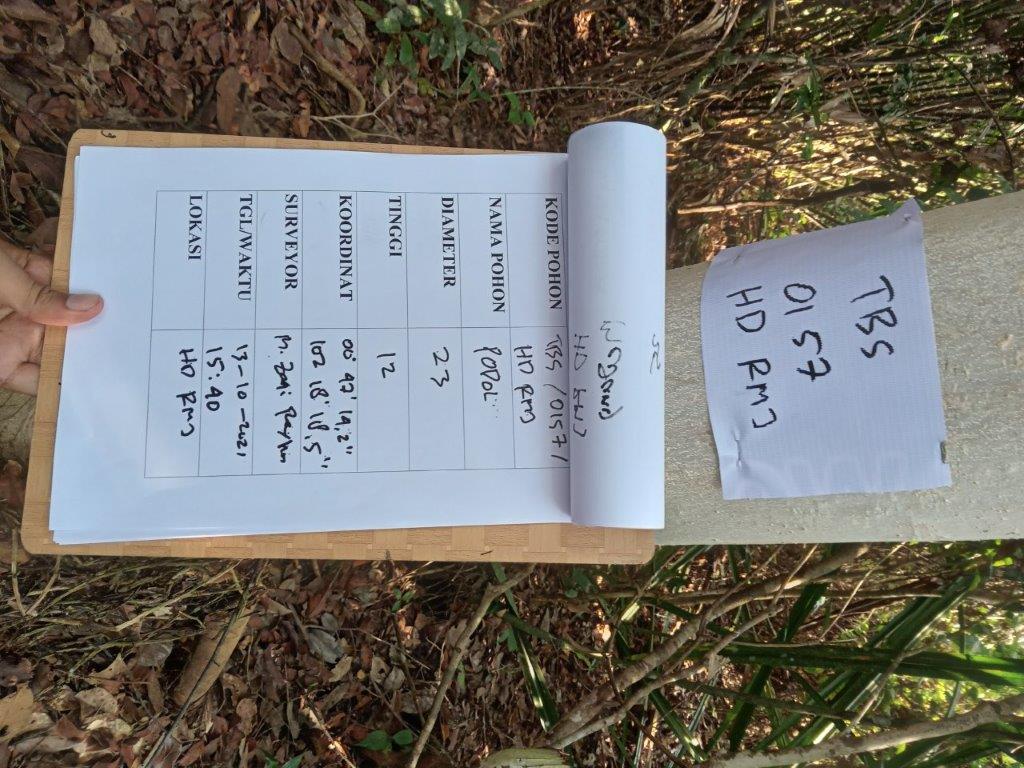 TBS
0157
HD RMJ
KODE POHON TBS /0157/
HD RMJ
NAMA POHON
DIAMETER 23
TINGGI 12
KOORDINAT 00° 47' 14,2"
102 18' 18,5"
SURVEYOR M.
TGL/WAKTU 13-10-2021
15:40
LOKASI HD RMJ